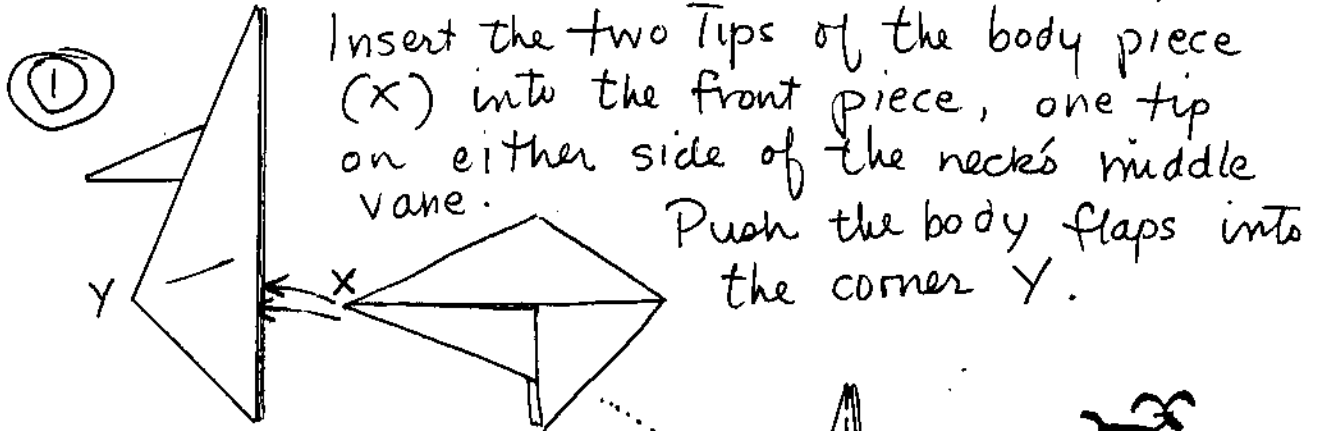 1
Insert the two Tips of the body piece
(X) into the front piece, one tip
on either side of the neck's middle
vane.
Push the body flaps into
the corner Y.
X
Y